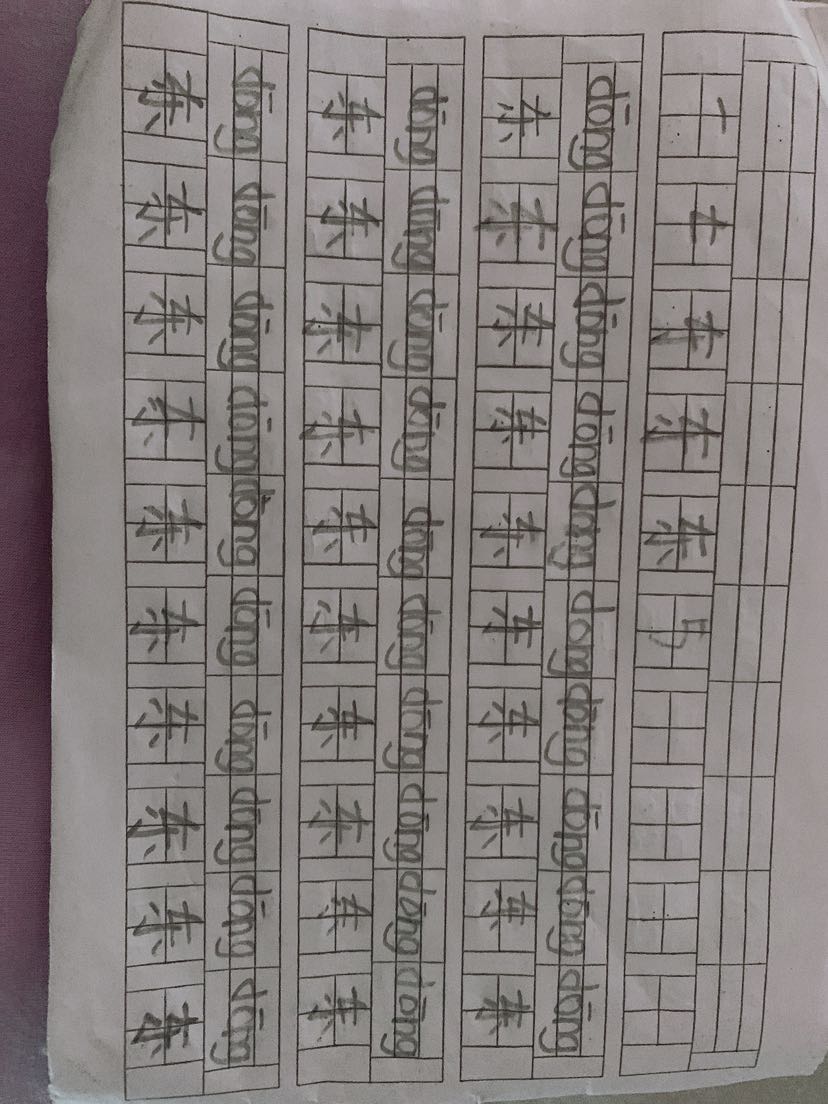 东 5
dōng dōng dōng dōng dōng dōng dōng dōng dōng dōng
东 东 东 东 东 东 东 东 东
dōng dōng dōng dōng dōng dōng dōng dōng dōng dōng
东 东 东 东 东 东 东 东 东 东
dōng dōng dōng dōng dōng dōng dōng dōng dōng dōng
东 东 东 东 东 东 东 东 东 东